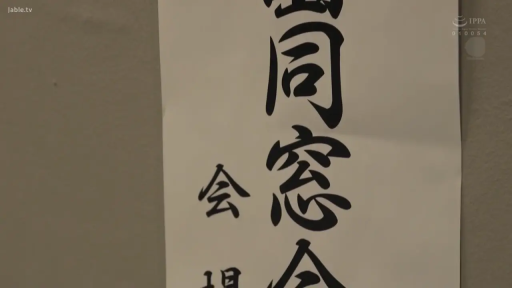 jable.tv
IPPA
同窓会
会場